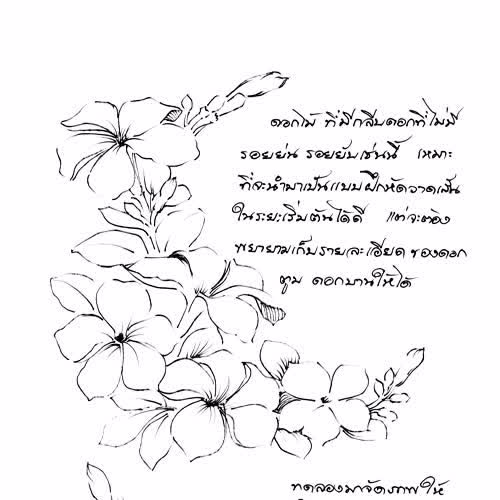 ดอกไม้ ที่มีกลีบดอกที่ไม่มี
รอยย่น รอยยับเช่นนี้ เหมาะ
ที่จะนำมาเป็นแบบฝึกหัดวาดเส้น
ในระยะเริ่มต้นได้ดี แต่จะต้อง
พยายามเก็บรายละเอียด ของดอก
ตูม ดอกบานให้ได้
ทดลองมาจัดภาพให้